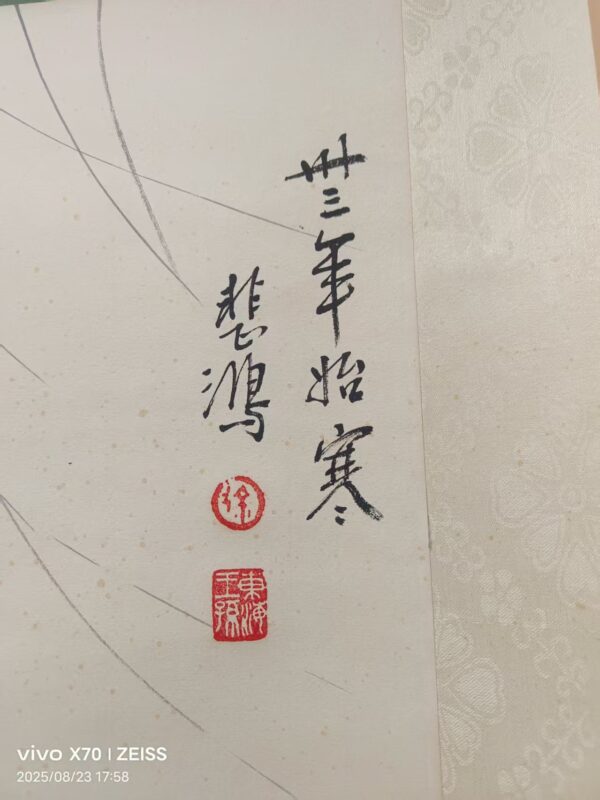 卅三年始寒
悲鴻
徐
東海
王孫
vivo X70 | ZEISS
2025/08/23 17:58